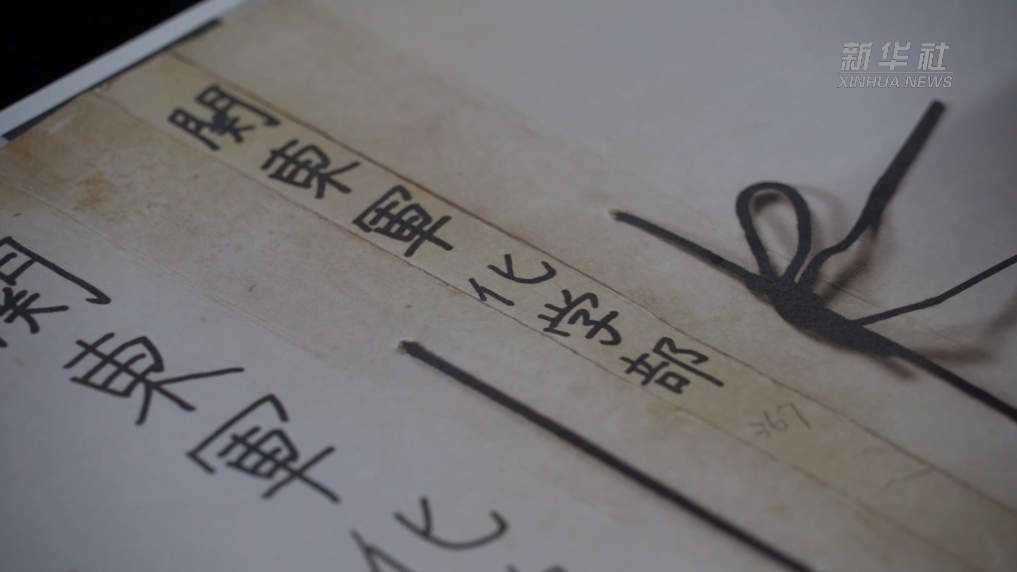 新华社
XINHUA NEWS
関東軍化学部
367
関東軍化